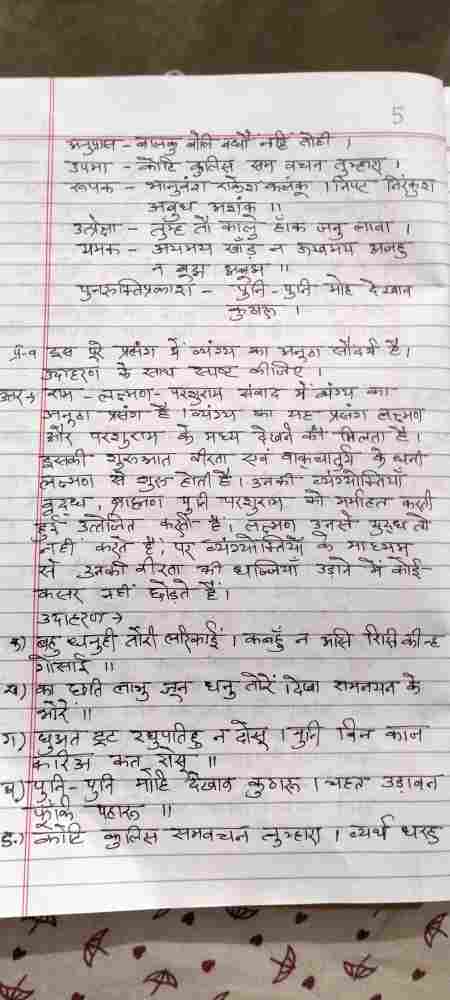 5
अनुप्रास - बालकु बोलि बधौं नहिं तोही ।
उपमा - कोटि कुलिस सम वचन तुम्हारा ।
रूपक - भानुवंश राकेश कलंकू । निपट निरंकुश
अबुध अशंकू ॥
उत्प्रेक्षा - तुम्ह तौ कालु हाँक जनु लावा ।
यमक - अयमय खाँड़ न ऊखमय अजहु
न बुझ अबुझ ॥
पुनरुक्तिप्रकाश - पुनि-पुनि मोह देखाव
कुठारू ।
प्र-9 इस पूरे प्रसंग में व्यंग्य का अनूठा सौंदर्य है।
उदाहरण के साथ स्पष्ट कीजिए ।
उत्तर→ राम - लक्ष्मण - परशुराम संवाद में व्यंग्य का
अनूठा प्रसंग है । व्यंग्य का यह प्रसंग लक्ष्मण
और परशुराम के मध्य देखने को मिलता है।
इसकी शुरुआत वीरता एवं वाक्चातुर्य के धनी
लक्ष्मण से शुरु होती है। उनकी व्यंग्योक्तियाँ
वृद्ध, ब्राह्मण मुनि परशुराम को मर्माहत करती
हुई उत्तेजित करती है। लक्ष्मण उनसे युद्ध तो
नहीं करते है, पर व्यंग्योक्तियों के माध्यम
से उनकी वीरता की धज्जियाँ उड़ाने में कोई
कसर नहीं छोड़ते हैं।
उदाहरण →
क) बहु धनुही तोरी लरिकाईं । कबहुँ न असि रिसि कीन्ह
गोसाईं ॥
ख) का छति लाभु जून धनु तोरें । देखा रामनयन के
भोरें ॥
ग) छुअत टूट रघुपतिहु न दोसू । मुनि बिन काज
करिअ कत रोसू ॥
घ) पुनि - पुनि मोहि देखाव कुठारू । चहत उड़ावन
फूंकि पहारू ॥
ङ.) कोटि कुलिस समवचन तुम्हारा । व्यर्थ धरहु